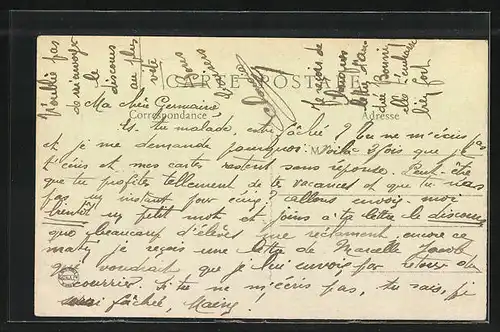 N'oublie pas
de m'envoyer
le
discours
au plus
vite
Bons
Baisers
Je reçois de
bien fort
CARTE POSTALE
Correspondance
Adresse
Ma chère Germaine
Es tu malade, es tu fâchée ? Tu ne m'écris pas
et je me demande pourquoi. Voilà 3 fois que je
t'écris et mes cartes restent sans réponse. Peut-être
que tu profites tellement de tes vacances et que tu n'as
pas un instant pour cinq ? allons envoie-moi
bientôt un petit mot et joins à ta lettre le discours
que beaucoup d'élèves me réclament encore ce
matin je reçois une lettre de Marcelle
qui voudrait que je lui envoie par retour du
courrier. Si tu ne m'écris pas, tu sais, je
serai fâchée,